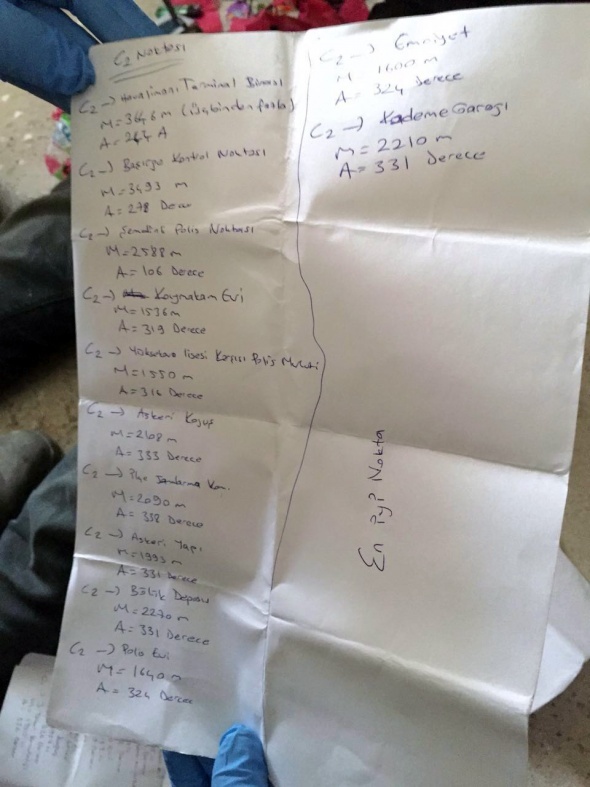 C2 Noktası
C2 → Havalimanı Terminal Binası
M = 3646 m
A = 264 A
C2 → Kontrol Noktası
M = 3493 m
A = 278 Derece
C2 → Polis Noktası
M = 2588 m
A = 106 Derece
C2 → Kaymakam Evi
M = 1536 m
A = 319 Derece
C2 → Lisesi Karşısı Polis
M = 1550 m
A = 316 Derece
C2 → Askeri
M = 2168 m
A = 333 Derece
C2 → Jandarma Kom.
M = 2090 m
A = 338 Derece
C2 → Askeri Yapı
M = 1993 m
A = 331 Derece
C2 → Bölük Deposu
M = 2270 m
A = 331 Derece
C2 → Polo Evi
M = 1640 m
A = 324 Derece
C2 → Emniyet
M 1600 m
A = 324 Derece
C2 → Kademe Garajı
M = 2210 m
A = 331 Derece
En iyi Nokta